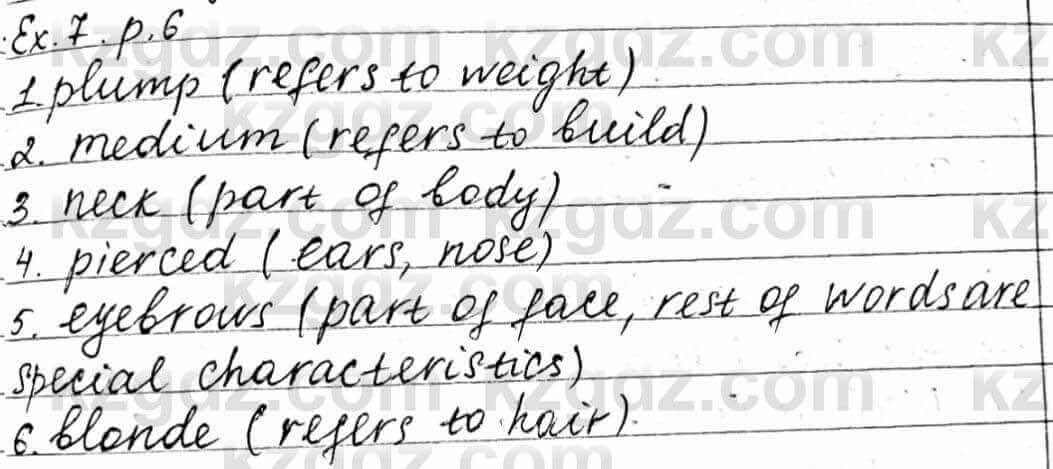 Ex. 7. p. 6
1. plump (refers to weight)
2. medium (refers to build)
3. neck (part of body)
4. pierced (ears, nose)
5. eyebrows (part of face, rest of words are
special characteristics)
6. blonde (refers to hair).
kzgdz.com